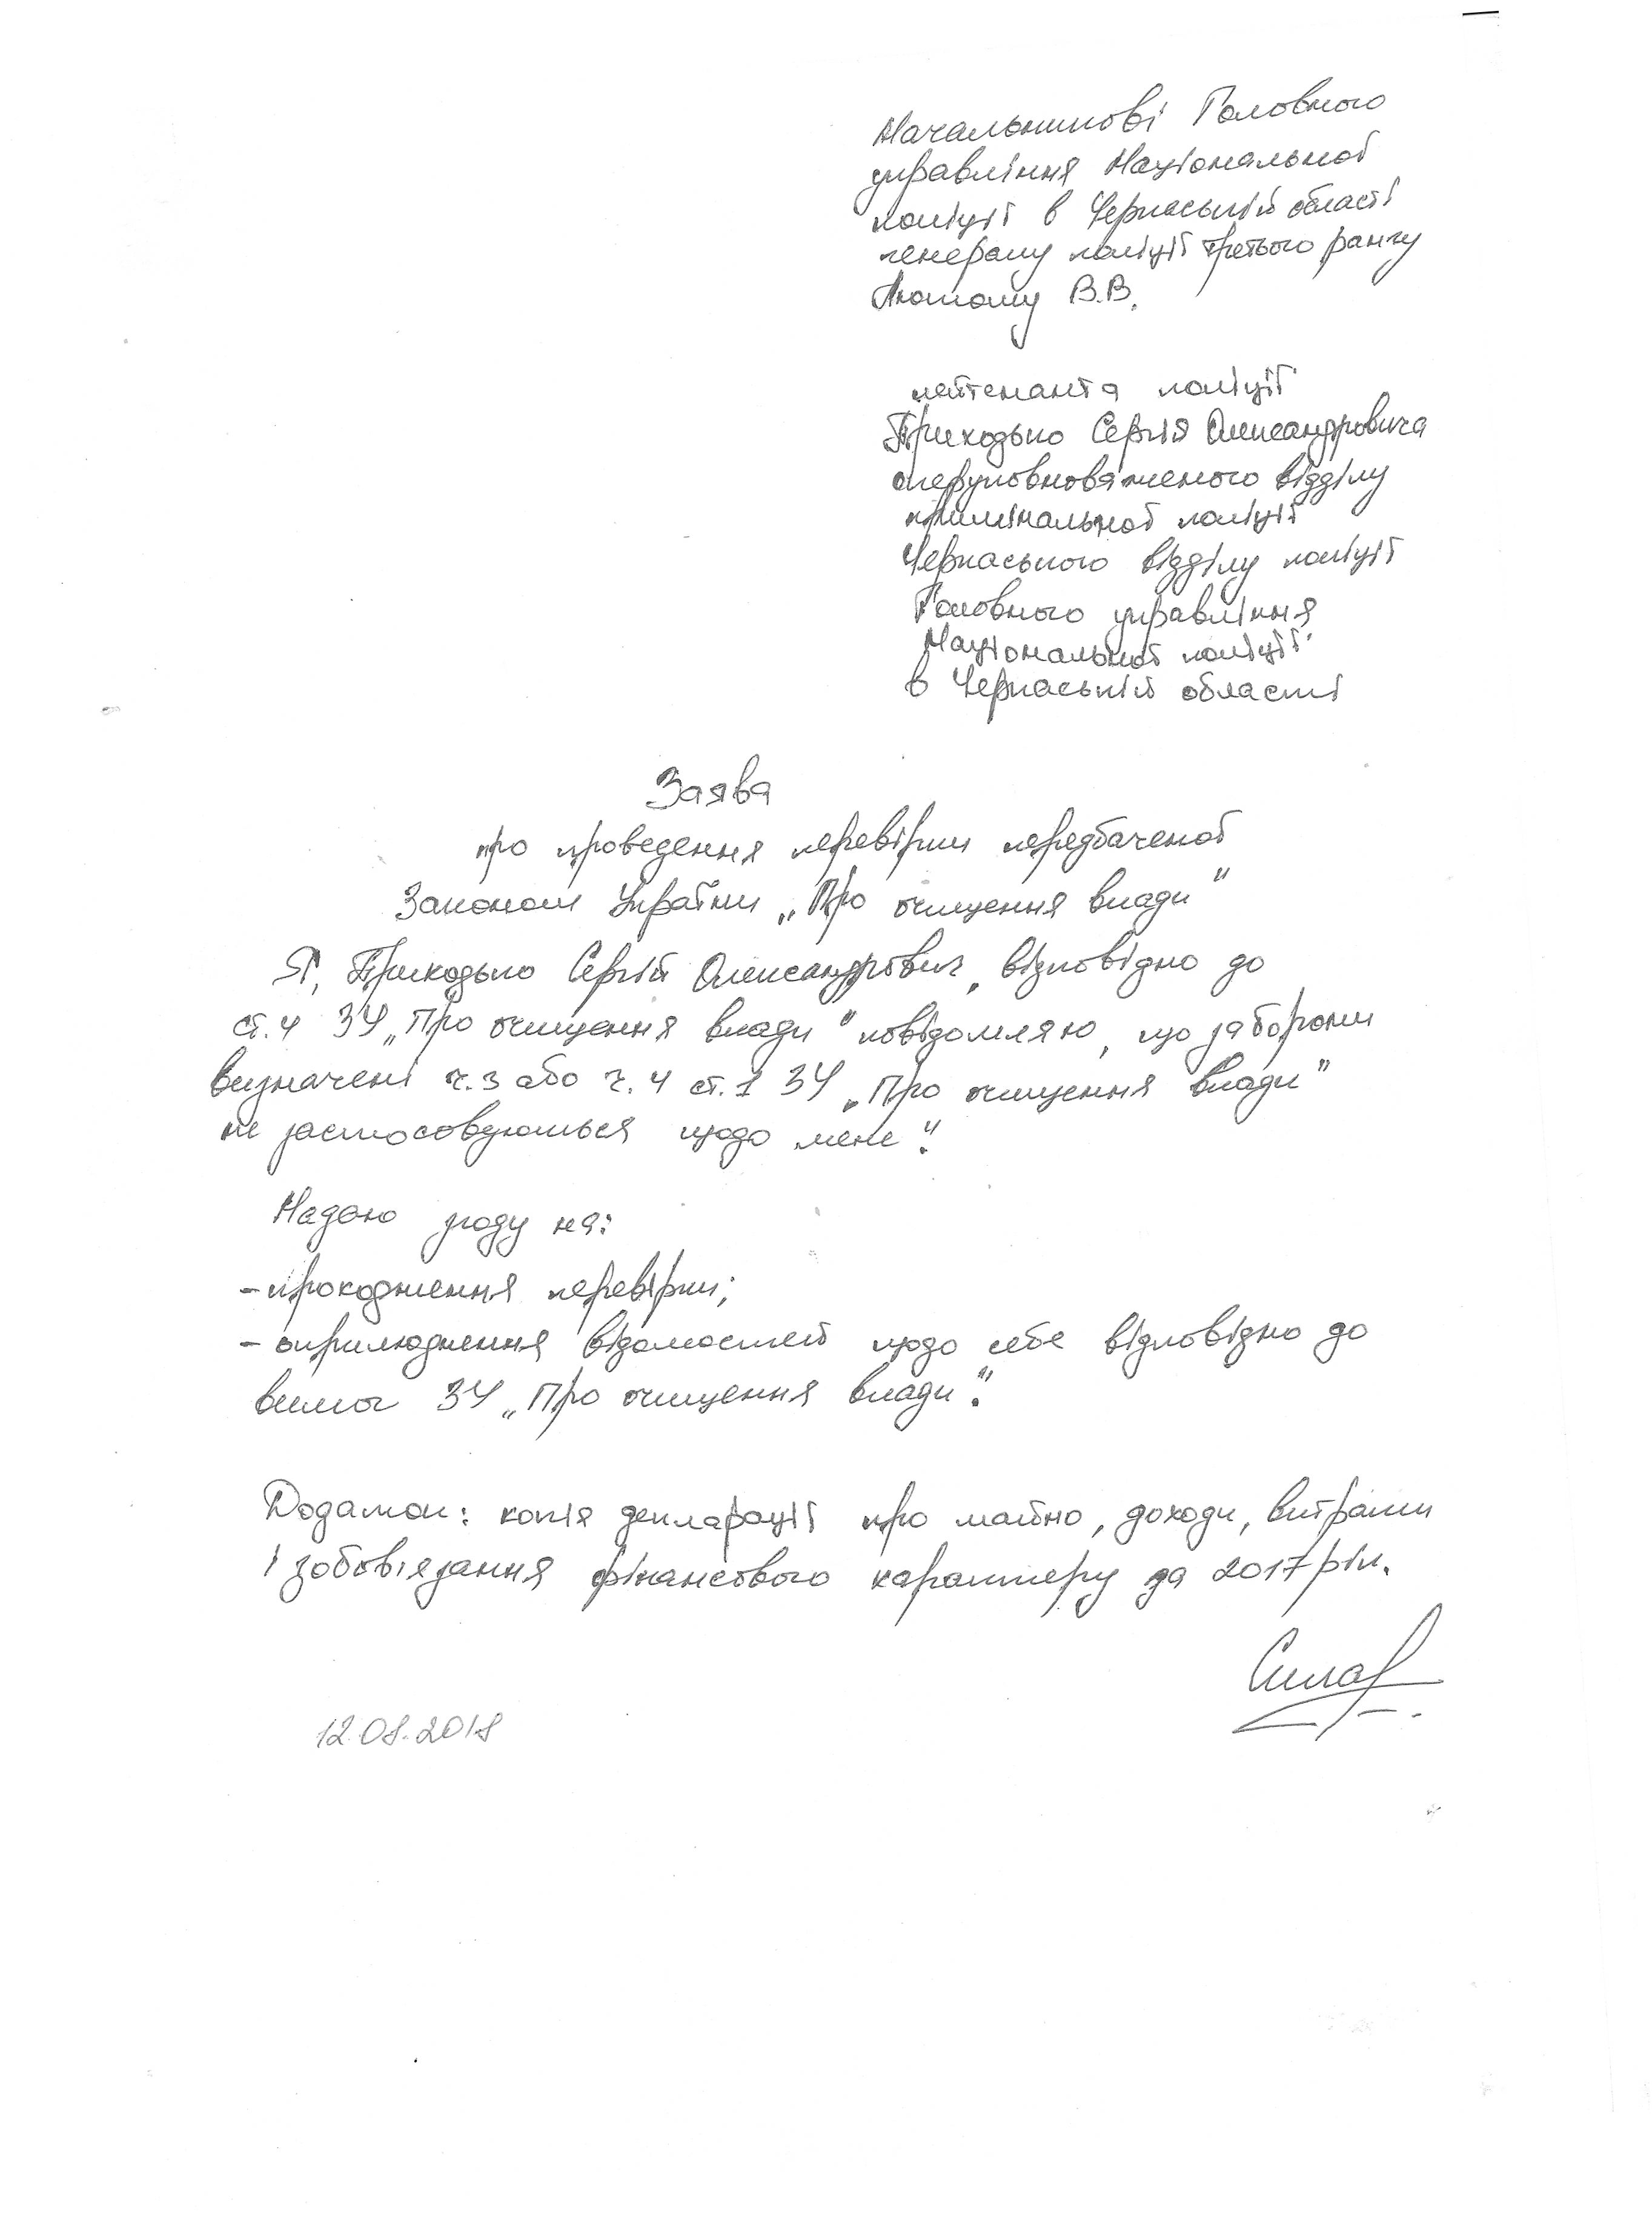 Начальникові Головного
управління Національної
поліції в Черкаській області
генералу поліції третього рангу
Лютому В.В.
лейтенанта поліції
Приходько Сергія Олександровича
оперуповноваженого відділу
кримінальної поліції
Черкаського відділу поліції
Головного управління
Національної поліції
в Черкаській області
Заява
про проведення перевірки передбаченої
Законом України „Про очищення влади"
Я, Приходько Сергій Олександрович, відповідно до
ст.4 ЗУ „Про очищення влади" повідомляю, що заборони
визначені ч.3 або ч.4 ст.1 ЗУ „Про очищення влади"
не застосовуються щодо мене".
Надаю згоду на:
- проходження перевірки;
- оприлюднення відомостей щодо себе відповідно до
вимог ЗУ „Про очищення влади".
Додаток: копія декларації про майно, доходи, витрати
і зобов'язання фінансового характеру за 2017 рік.
12.08.2018